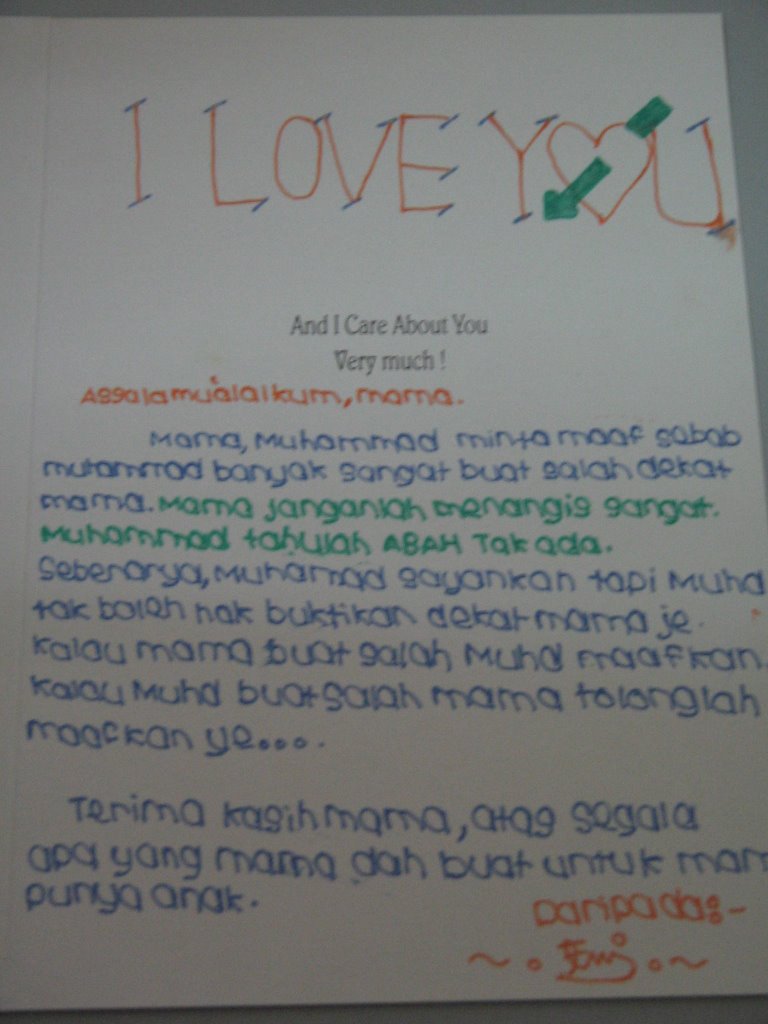 I LOVE YOU
And I Care About You
Very much !
Assalamu'alaikum, mama.
Mama, Muhammad minta maaf sebab
muhammad banyak sangat buat salah dekat
mama. Mama janganlah menangis sangat.
Muhammad tahulah ABAH Tak ada.
Sebenarya, Muhamad sayankan tapi Muhd
tak boleh nak buktikan dekat mama je.
Kalau mama buat salah Muhd maafkan.
Kalau Muhd buat salah mama tolonglah
maafkan ye....
Terima kasih mama, atas segala
apa yang mama dah buat untuk mam
punya anak.
Daripada:-